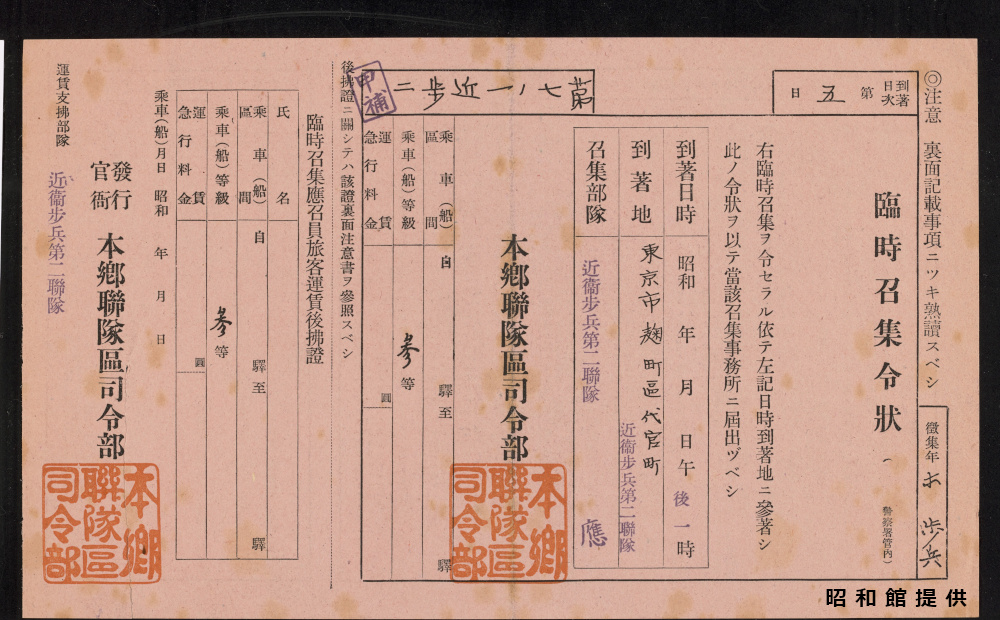 ◎注意 裏面記載事項ニツキ熟讀スベシ
徵集年 歩兵
到著日次 第五日
臨時召集令狀
(警察署管内)
右臨時召集ヲ令セラル依テ左記日時到著地ニ參著シ
此ノ令狀ヲ以テ當該召集事務所ニ屆出ヅベシ
到著日時 昭和 年 月 日午後一時
到著地 東京市麹町區代官町
近衞步兵第二聯隊
召集部隊 近衞步兵第二聯隊 應
第七八一近歩二
本鄕聯隊區司令部
本鄕聯隊區司令部
乘車(船)區間 自 驛至 驛
乘車(船)等級 參等
運賃急行料金 圓
甲補
後拂證ニ關シテハ該證裏面注意書ヲ參照スベシ
臨時召集應召員旅客運賃後拂證
氏名
乘車(船)區間 自 驛至 驛
乘車(船)等級 參等
運賃急行料金 圓
乘車(船)月日 昭和 年 月 日
發行官衙 本鄕聯隊區司令部
本鄕聯隊區司令部
運賃支拂部隊 近衞步兵第二聯隊
昭和館提供